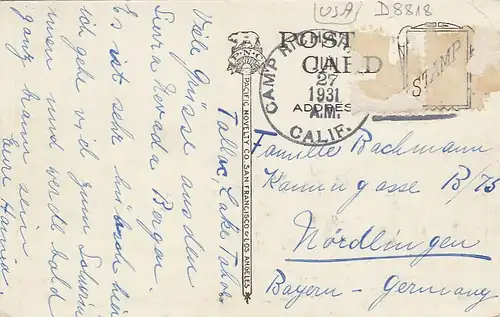 USA D8818
POST
CARD
STAMP
CAMP RICH
JUN
27
1931
A.M.
CALIF.
ADDRES
PNC
PACIFIC NOVELTY CO. SAN FRANCISCO & LOS ANGELES
Tallac Lake Tahoe
Viele Grüsse aus den
Sierra Nevada Bergen.
Es ist sehr hübsch hier
ich gehe viel zum Schwim
men und werde bald
ganz braun sein
Eure Hanna.
Familie Bachmann
Kamm gasse B/75
Nördlingen
Bayern - Germany